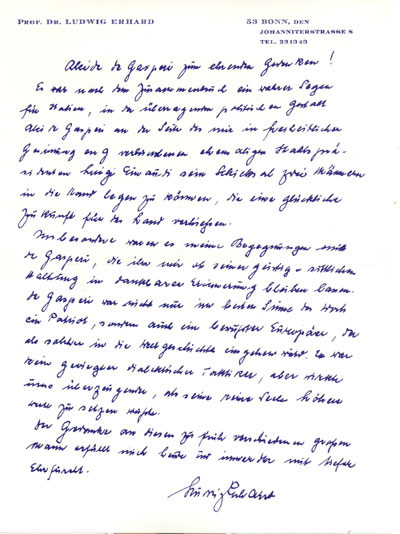 PROF. DR. LUDWIG ERHARD
53 BONN, DEN
JOHANNITERSTRASSE 8
TEL. 231343
Alcide de Gasperi zum ehrenden Gedenken!
Es war nach dem Zusammenbruch ein wahrer Segen
für Italien, in der überragenden politischen Gestalt
Alcide de Gasperi an der Seite des mir in freiheitlicher
Gesinnung eng verbundenen ehemaligen Staatsprä-
sidenten Luigi Einaudi sein Schicksal zwei Männern
in die Hand legen zu können, die eine glückliche
Zukunft für das Land verhiessen.
Insbesondere waren es meine Begegnungen mit
de Gasperi, die ihn mir ob seiner geistig-sittlichen
Haltung in dankbarer Erinnerung bleiben lassen.
de Gasperi war nicht nur im besten Sinne des Worts
ein Patriot, sondern auch ein bewusster Europäer, der
als solcher in die Weltgeschichte eingehen wird. Er war
kein gerissener dialektischer Taktiker, aber wirkte
umso überzeugender, als seine reine Seele höhere
Werte zu setzen wusste.
Der Gedanke an diesen zu früh verschiedenen grossen
Mann erfüllt mich heute und immer mit tiefer
Ehrfurcht.
Ludwig Erhard